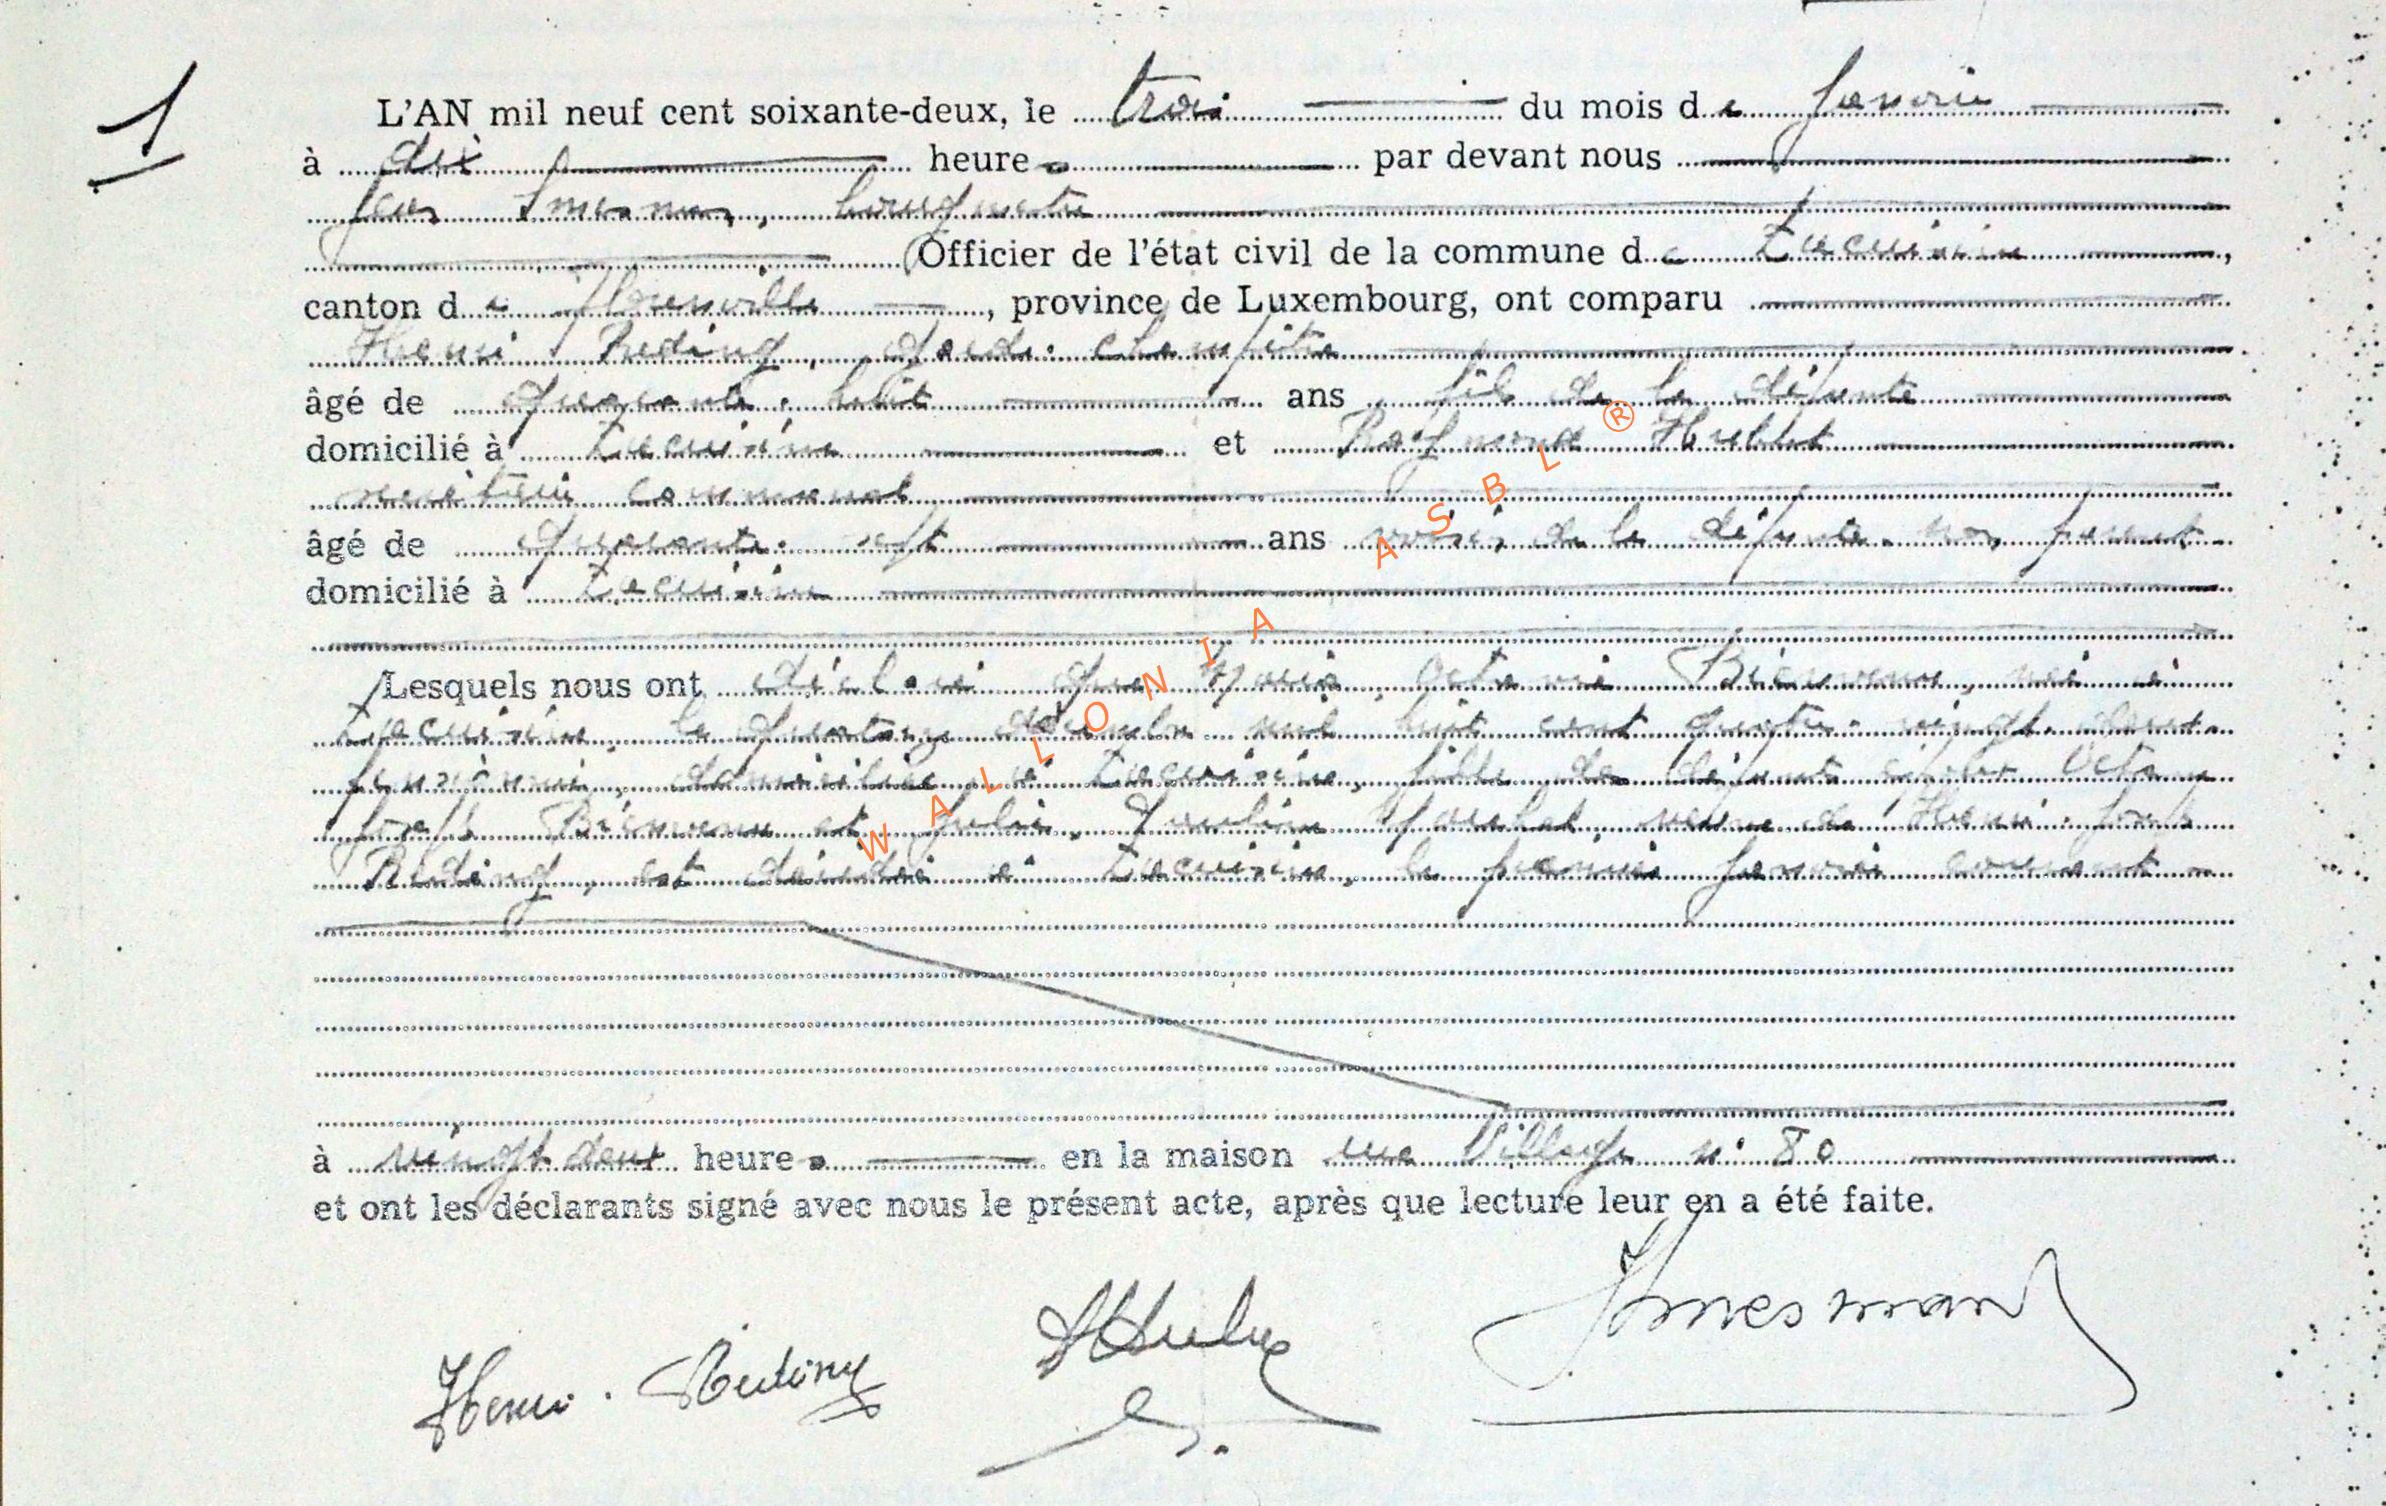 1
L'AN mil neuf cent soixante-deux, le trois du mois de Janvier
à dix heures par devant nous
Jean Smesman, bourgmestre
Officier de l'état civil de la commune de Lacuisine,
canton de Florenville, province de Luxembourg, ont comparu
Henri Reding, garde-champêtre
âgé de quarante-huit ans fils de la défunte
domicilié à Lacuisine et Raymond
secrétaire communal
âgé de quarante-sept ans voisin de la défunte non parent
domicilié à Lacuisine
Lesquels nous ont déclaré que Marie, Octavie Bienvenu, née à
Lacuisine, le quatorze décembre mil huit cent quatre-vingt-deux
domiciliée à Lacuisine, fille de défunts Octave
Joseph Bienvenu et Julie, veuve de Henri-Joseph
Reding, est décédée à Lacuisine, le premier janvier courant
à vingt deux heures en la maison rue Village n° 80
et ont les déclarants signé avec nous le présent acte, après que lecture leur en a été faite.
Henri. Reding
Smesman
WALLONIA ASBL ®